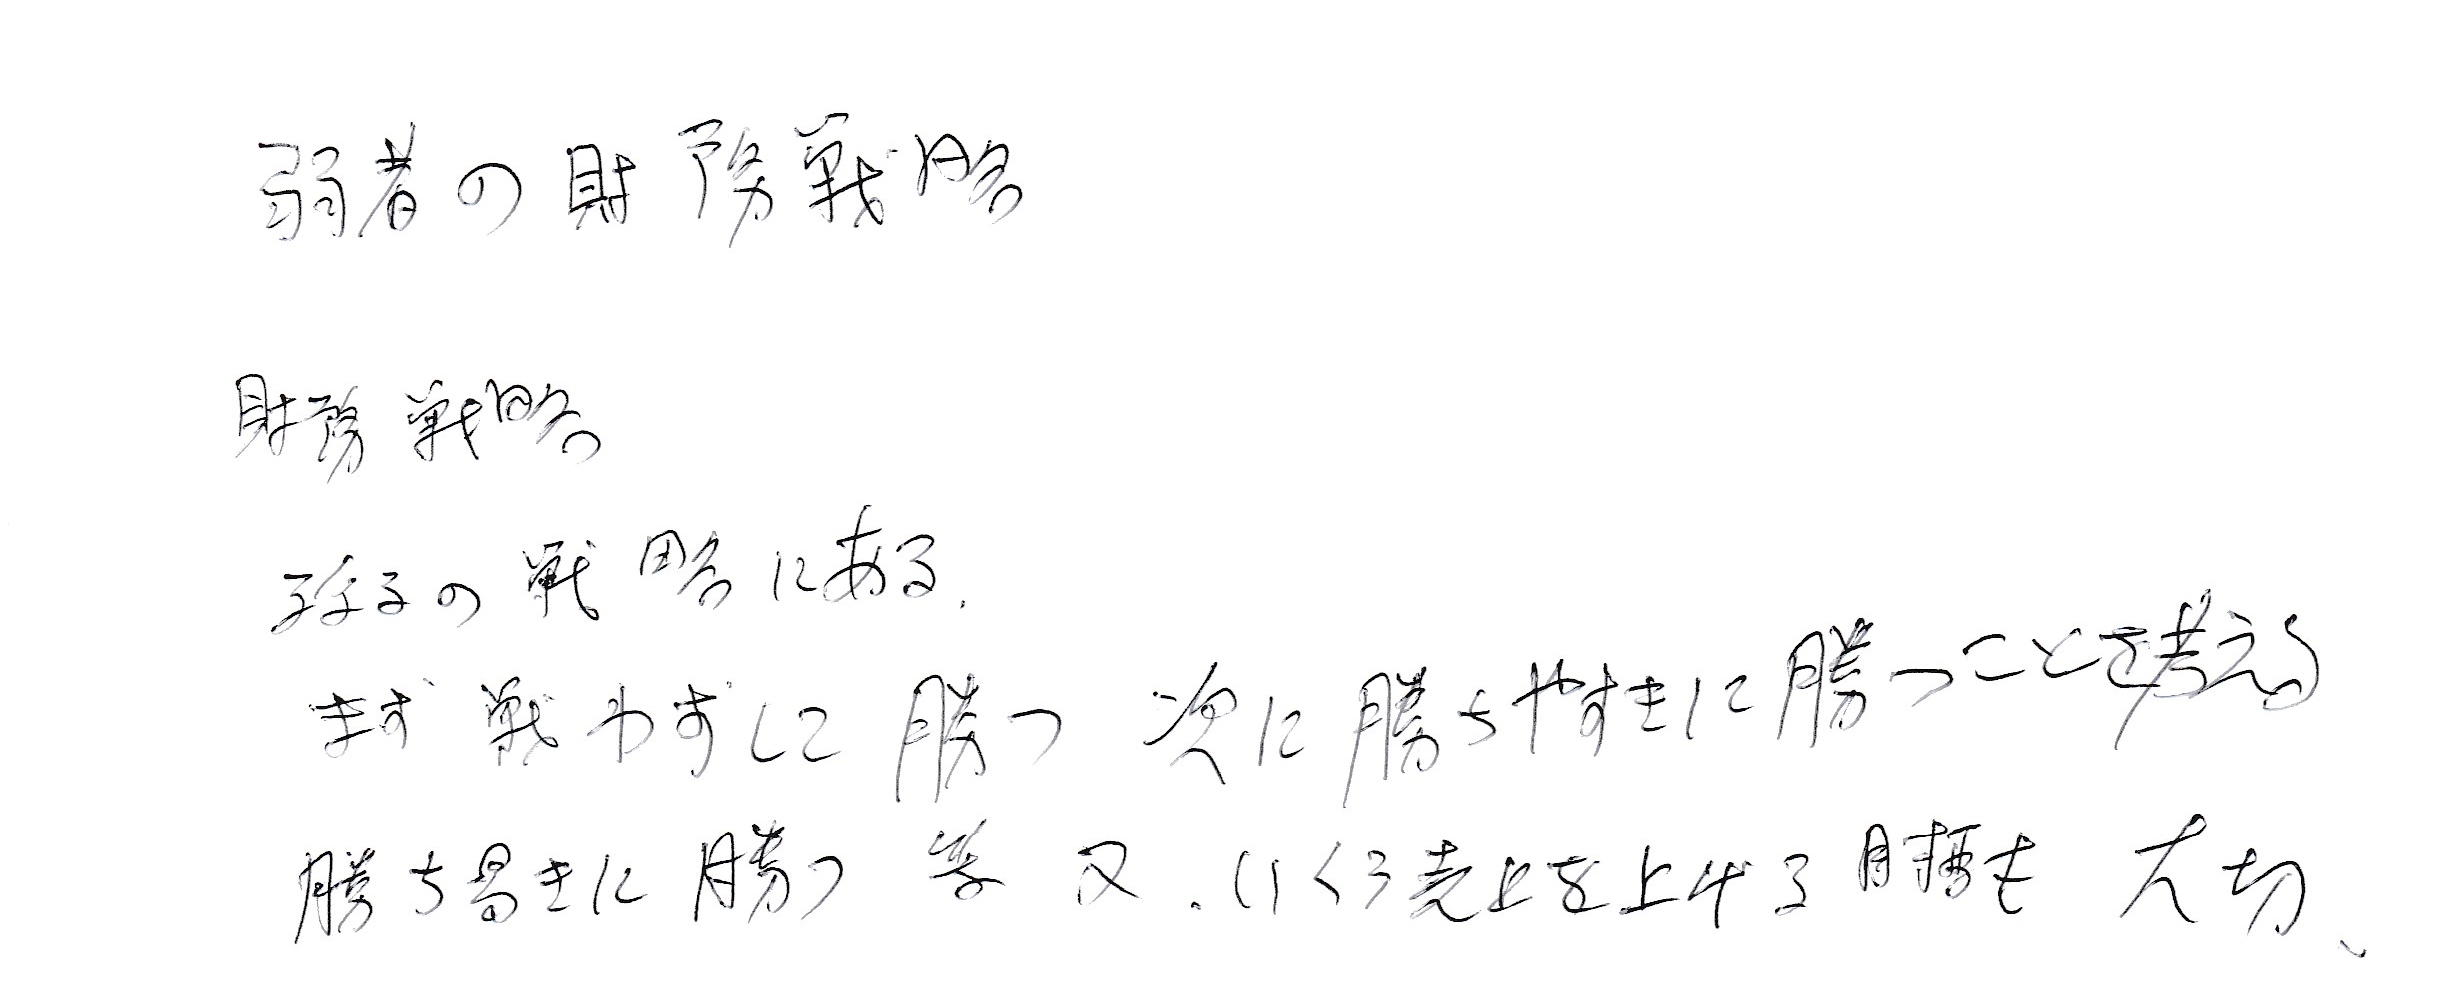 弱者の財務戦略
財務戦略
孫子の戦略にある.
まず戦わずして勝つ 次に勝ちやすきに勝つことを考える
勝ち易きに勝つ 等 又.いくら売上を上げる目標も大切、